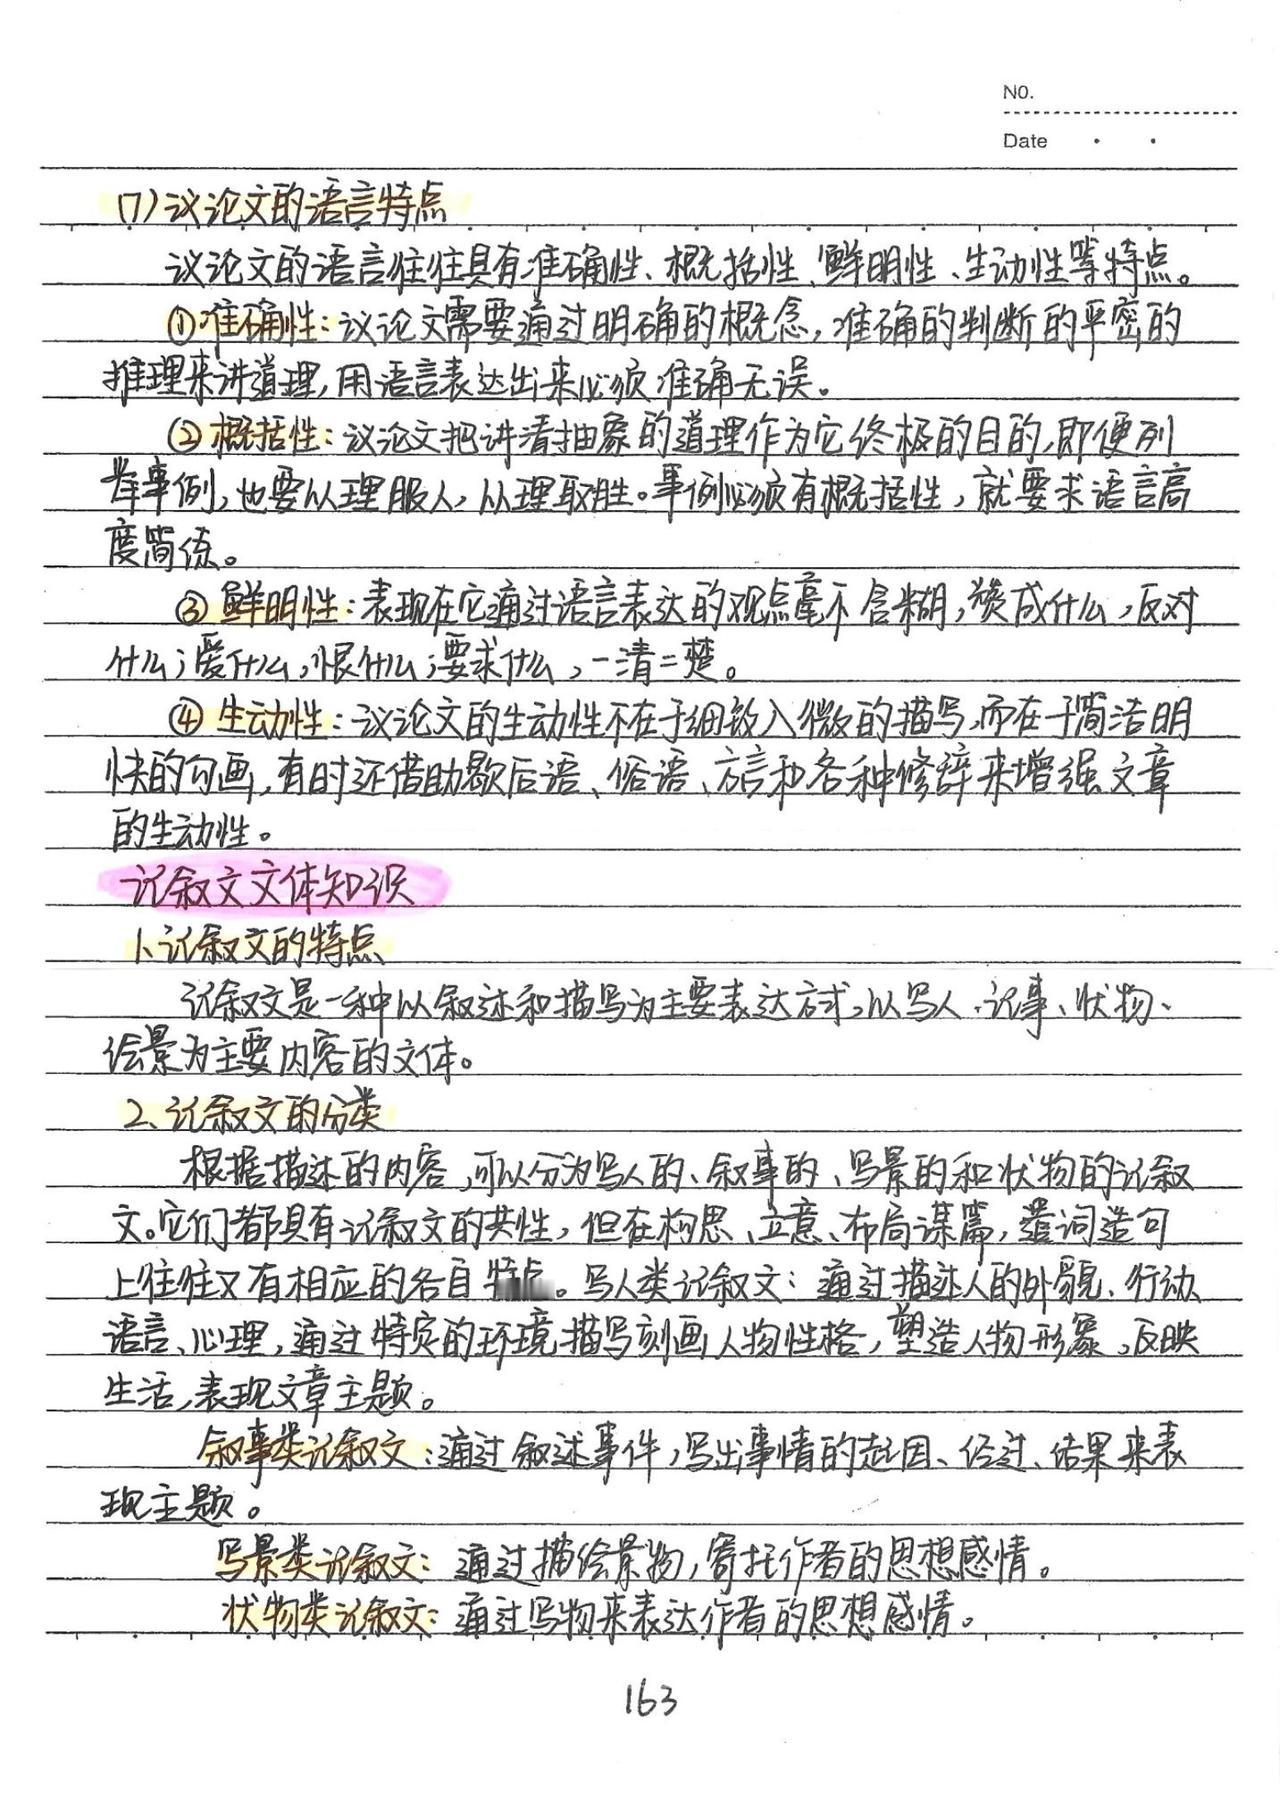 NO.
Date
(7)议论文的语言特点
议论文的语言往往具有准确性、概括性、鲜明性、生动性等特点。
①准确性：议论文需要通过明确的概念，准确的判断的严密的
推理来讲道理，用语言表达出来必须准确无误。
②概括性：议论文把讲清抽象的道理作为它终极的目的，即便列
举事例，也要以理服人，以理取胜。事例必须有概括性，就要求语言高
度简练。
③鲜明性：表现在它通过语言表达的观点毫不含糊，赞成什么，反对
什么；爱什么，恨什么；要求什么，一清二楚。
④生动性：议论文的生动性不在于细致入微的描写，而在于简洁明
快的勾画，有时还借助歇后语、俗语、方言和各种修辞来增强文章
的生动性。
记叙文文体知识
1、记叙文的特点
记叙文是一种以叙述和描写为主要表达方式，以写人、记事、状物、
绘景为主要内容的文体。
2、记叙文的分类
根据描述的内容，可以分为写人的、叙事的、写景的和状物的记叙
文。它们都具有记叙文的共性，但在构思、立意、布局谋篇，遣词造句
上往往又有相应的各自特点。写人类记叙文：通过描述人的外貌、行动、
语言、心理，通过特定的环境描写刻画人物性格，塑造人物形象，反映
生活，表现文章主题。
叙事类记叙文：通过叙述事件，写出事情的起因、经过、结果来表
现主题。
写景类记叙文：通过描绘景物，寄托作者的思想感情。
状物类记叙文：通过写物来表达作者的思想感情。
163